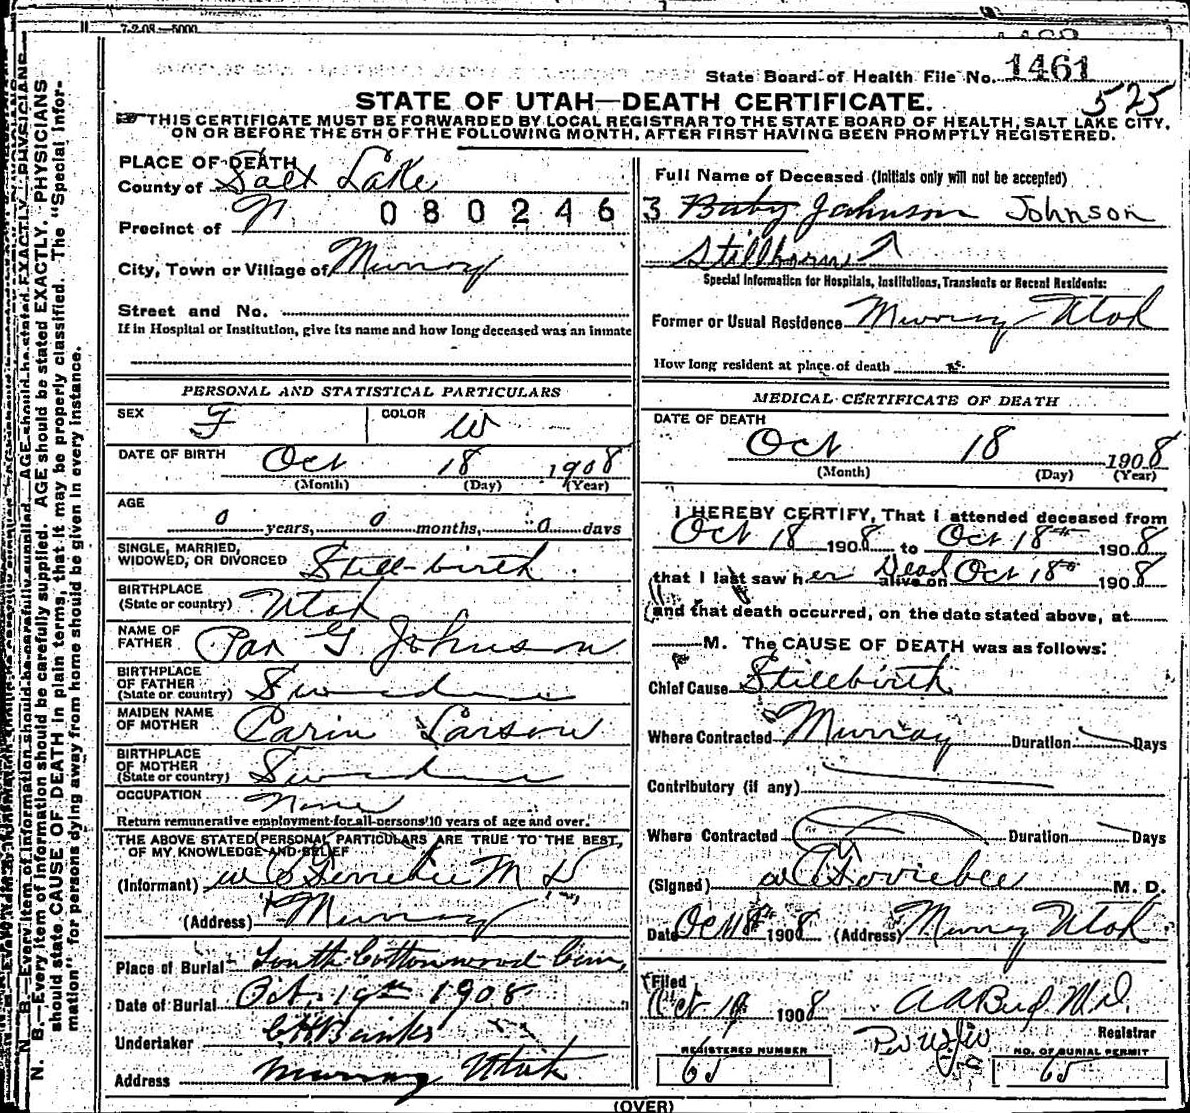 7-2-08—5000
State Board of Health File No. 1461
525
STATE OF UTAH—DEATH CERTIFICATE.
THIS CERTIFICATE MUST BE FORWARDED BY LOCAL REGISTRAR TO THE STATE BOARD OF HEALTH, SALT LAKE CITY,
ON OR BEFORE THE 5TH OF THE FOLLOWING MONTH, AFTER FIRST HAVING BEEN PROMPTLY REGISTERED.
PLACE OF DEATH
County of Salt Lake
080246
Precinct of
City, Town or Village of Murray
Street and No.
If in Hospital or Institution, give its name and how long deceased was an inmate
Full Name of Deceased (Initials only will not be accepted)
3 Baby Johnson Johnson
Stillborn
Special Information for Hospitals, Institutions, Transients or Recent Residents:
Former or Usual Residence Murray Utah
How long resident at place of death
PERSONAL AND STATISTICAL PARTICULARS
SEX F COLOR W
DATE OF BIRTH Oct 18 1908
(Month) (Day) (Year)
AGE
0 years, 0 months, 0 days
SINGLE, MARRIED,
WIDOWED, OR DIVORCED Still-birth
BIRTHPLACE
(State or country) Utah
NAME OF
FATHER Par G. Johnson
BIRTHPLACE
OF FATHER
(State or country) Sweden
MAIDEN NAME
OF MOTHER Carin Larson
BIRTHPLACE
OF MOTHER
(State or country) Sweden
OCCUPATION None
Return remunerative employment for all persons 10 years of age and over.
THE ABOVE STATED PERSONAL PARTICULARS ARE TRUE TO THE BEST
OF MY KNOWLEDGE AND BELIEF
(Informant) M D
(Address) Murray
Place of Burial South Cottonwood Cem,
Date of Burial Oct. 19th 1908
Undertaker Banks
Address Murray Utah
MEDICAL CERTIFICATE OF DEATH
DATE OF DEATH
Oct 18 1908
(Month) (Day) (Year)
I HEREBY CERTIFY, That I attended deceased from
Oct 18 1908 to Oct 18th 1908
that I last saw her Dead alive on Oct 18 1908
and that death occurred, on the date stated above, at
M. The CAUSE OF DEATH was as follows:
Chief Cause Stillbirth
Where Contracted Murray Duration Days
Contributory (if any)
Where Contracted Duration Days
(Signed) M. D.
Date Oct 18th 1908 (Address) Murray Utah
Filed
Oct 19 1908 M.D.
Registrar
REGISTERED NUMBER
65
NO. OF BURIAL PERMIT
65
(OVER)
N. B.—Every item of information should be carefully supplied. AGE should be stated EXACTLY. PHYSICIANS
should state CAUSE OF DEATH in plain terms, that it may be properly classified. The "Special Infor-
mation" for persons dying away from home should be given in every instance.